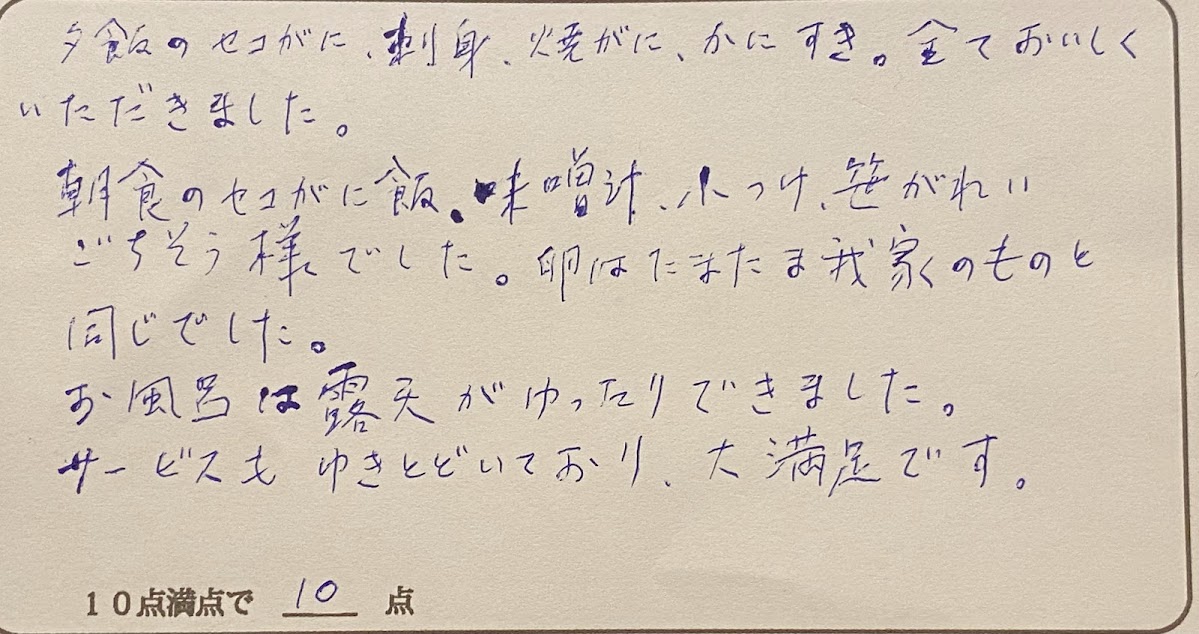 夕飯のセコがに、刺身、焼がに、かにすき。全ておいしく
いただきました。
朝食のセコがに飯、味噌汁、小つけ、笹がれい
ごちそう様でした。卵はたまたま我家のものと
同じでした。
お風呂は露天がゆったりできました。
サービスもゆきとどいており、大満足です。
10点満点で 10 点